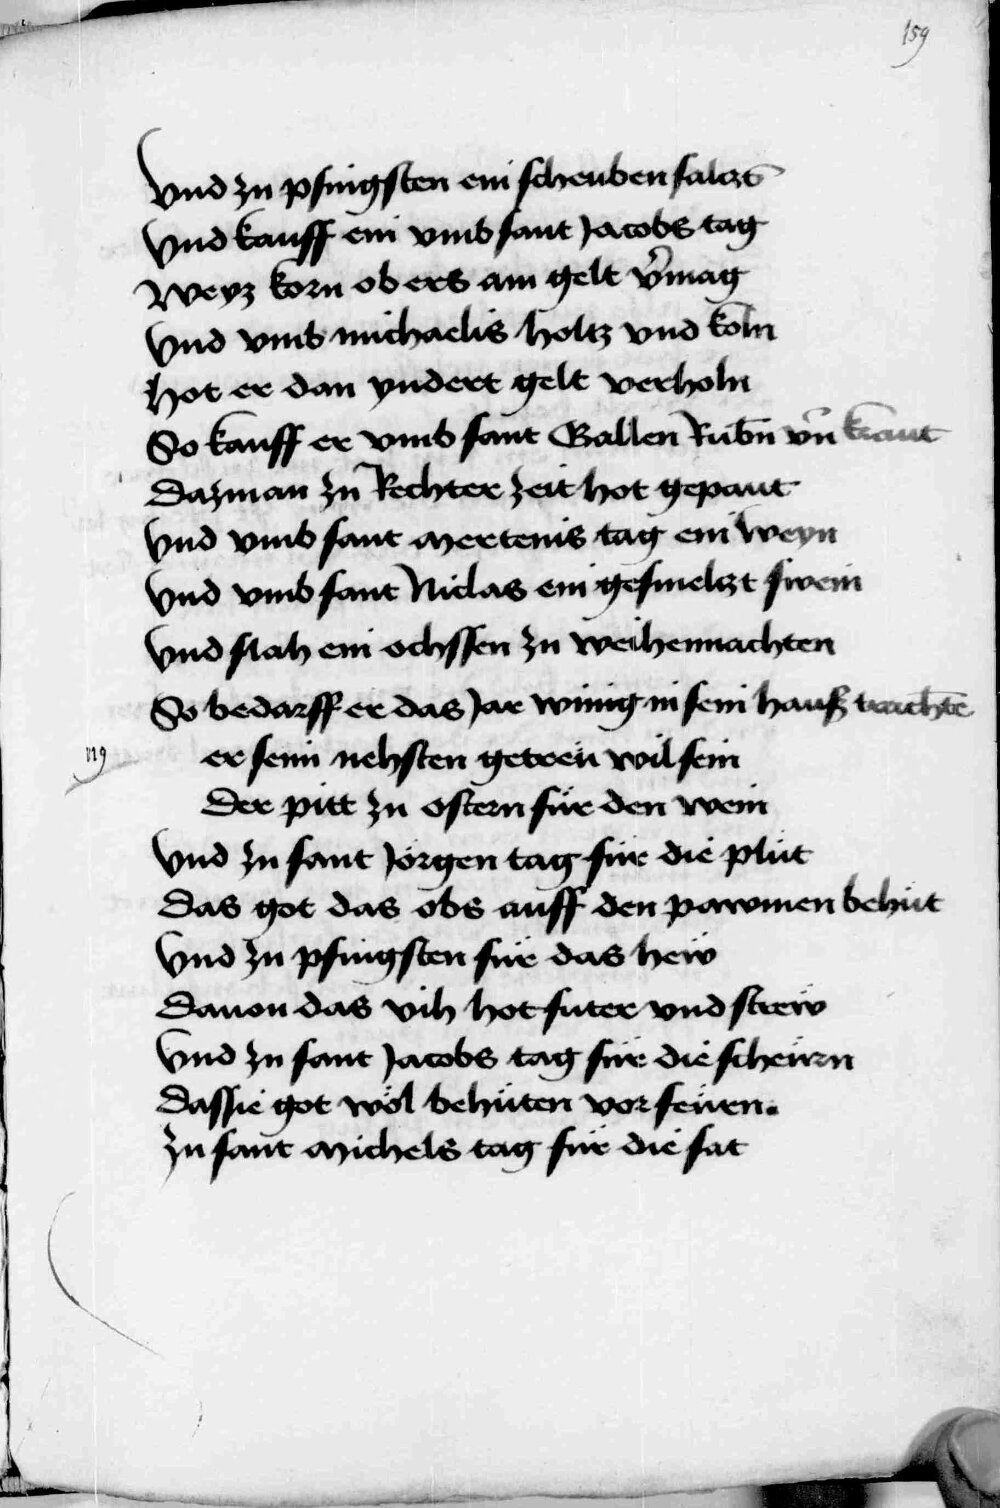 159
Vnd zu pfingsten ein scheuben salczs
Vnd kauff ein vmb sant Jacobs tag
Weyz korn ob ers am gelt v̄mag
Vnd vmb michaelis holtz vnd koln
Hot er dan yndert gelt verholn
So kauff er vmb sant Gallen Rubn̄ vn̄ kraut
Dazman zu Rechter zeit hot gepaut
Vnd vmb sant Mertenis tag ein Weyn
Vnd vmb sant Niclas ein gesmelczt swein
Vnd slah ein ochssen zu weihennachten
So bedarff er das Jar winig in sein hauß trachtē
119
er seim nehsten getreü wil sein
Der pitt zu ostern für den wein
Vnd zu sant Jörgen tag für die plüt
Das got das obs auff den pawmen behüt
Vnd zu pfingsten für das heẅ
Dauon das vih hot futer vnd streẅ
Vnd zu sant Jacobs tag für die scheürn
Dassie got wöl behüten vor feüen.
Zu sant Michels tag für die sat